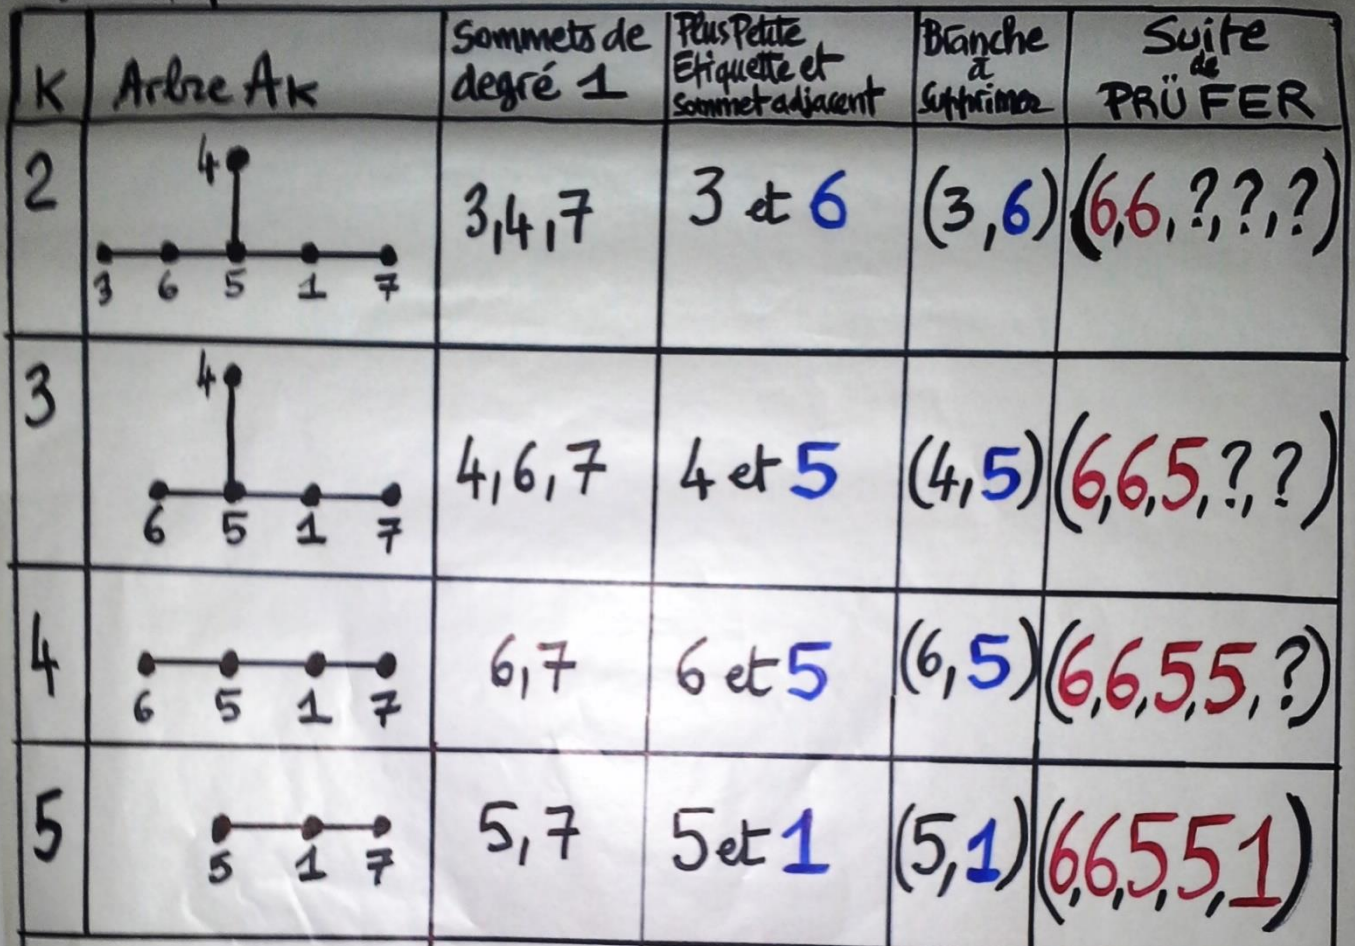 K
Arbre AK
Sommets de
degré 1
Plus Petite
Etiquette et
sommet adjacent
Branche
à
Supprimer
Suite
de
PRÜFER
2
4
3 6 5 1 7
3,4,7
3 et 6
(3,6)
(6,6,?,?,?)
3
4
6 5 1 7
4,6,7
4 et 5
(4,5)
(6,6,5,?,?)
4
6 5 1 7
6,7
6 et 5
(6,5)
(6,6,5,5,?)
5
5 1 7
5,7
5 et 1
(5,1)
(6,6,5,5,1)